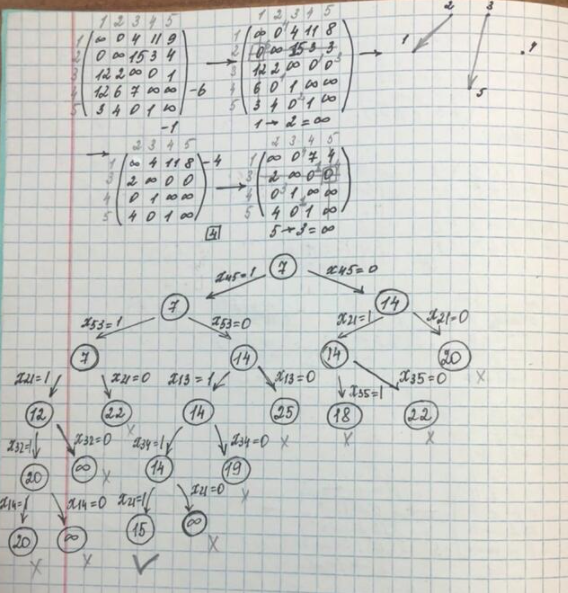 1 2 3 4 5
1 ∞ 0 4 11 9
2 0 ∞ 15 3 4
3 12 2 ∞ 0 1
4 12 6 7 ∞ ∞ -6
5 3 4 0 1 ∞
-1
→
1 2 3 4 5
1 ∞ 0 4 11 8
2 0 ∞ 15 3 3
3 12 2 ∞ 0 0
4 6 0 1 ∞ ∞
5 3 4 0 1 ∞
1 → 2 = ∞
→
2 3
1
5
→
2 3 4 5
1 ∞ 4 11 8 -4
3 2 ∞ 0 0
4 0 1 ∞ ∞
5 4 0 1 ∞
→
2 3 4 5
1 ∞ 0 7 4
3 2 ∞ 0 0
4 0 1 ∞ ∞
5 4 0 1 ∞
5 → 3 = ∞
4
7
x45=1 x45=0
7 14
x53=1 x53=0 x21=1 x21=0
7 14 14 20 x
x21=1 x21=0 x13=1 x13=0 x35=1 x35=0
12 22 x 14 25 x 18 x 22 x
x32=1 x32=0 x34=1 x34=0
20 ∞ x 14 19 x
x14=1 x14=0 x21=1 x21=0
20 x ∞ x 15 ✓ ∞ x